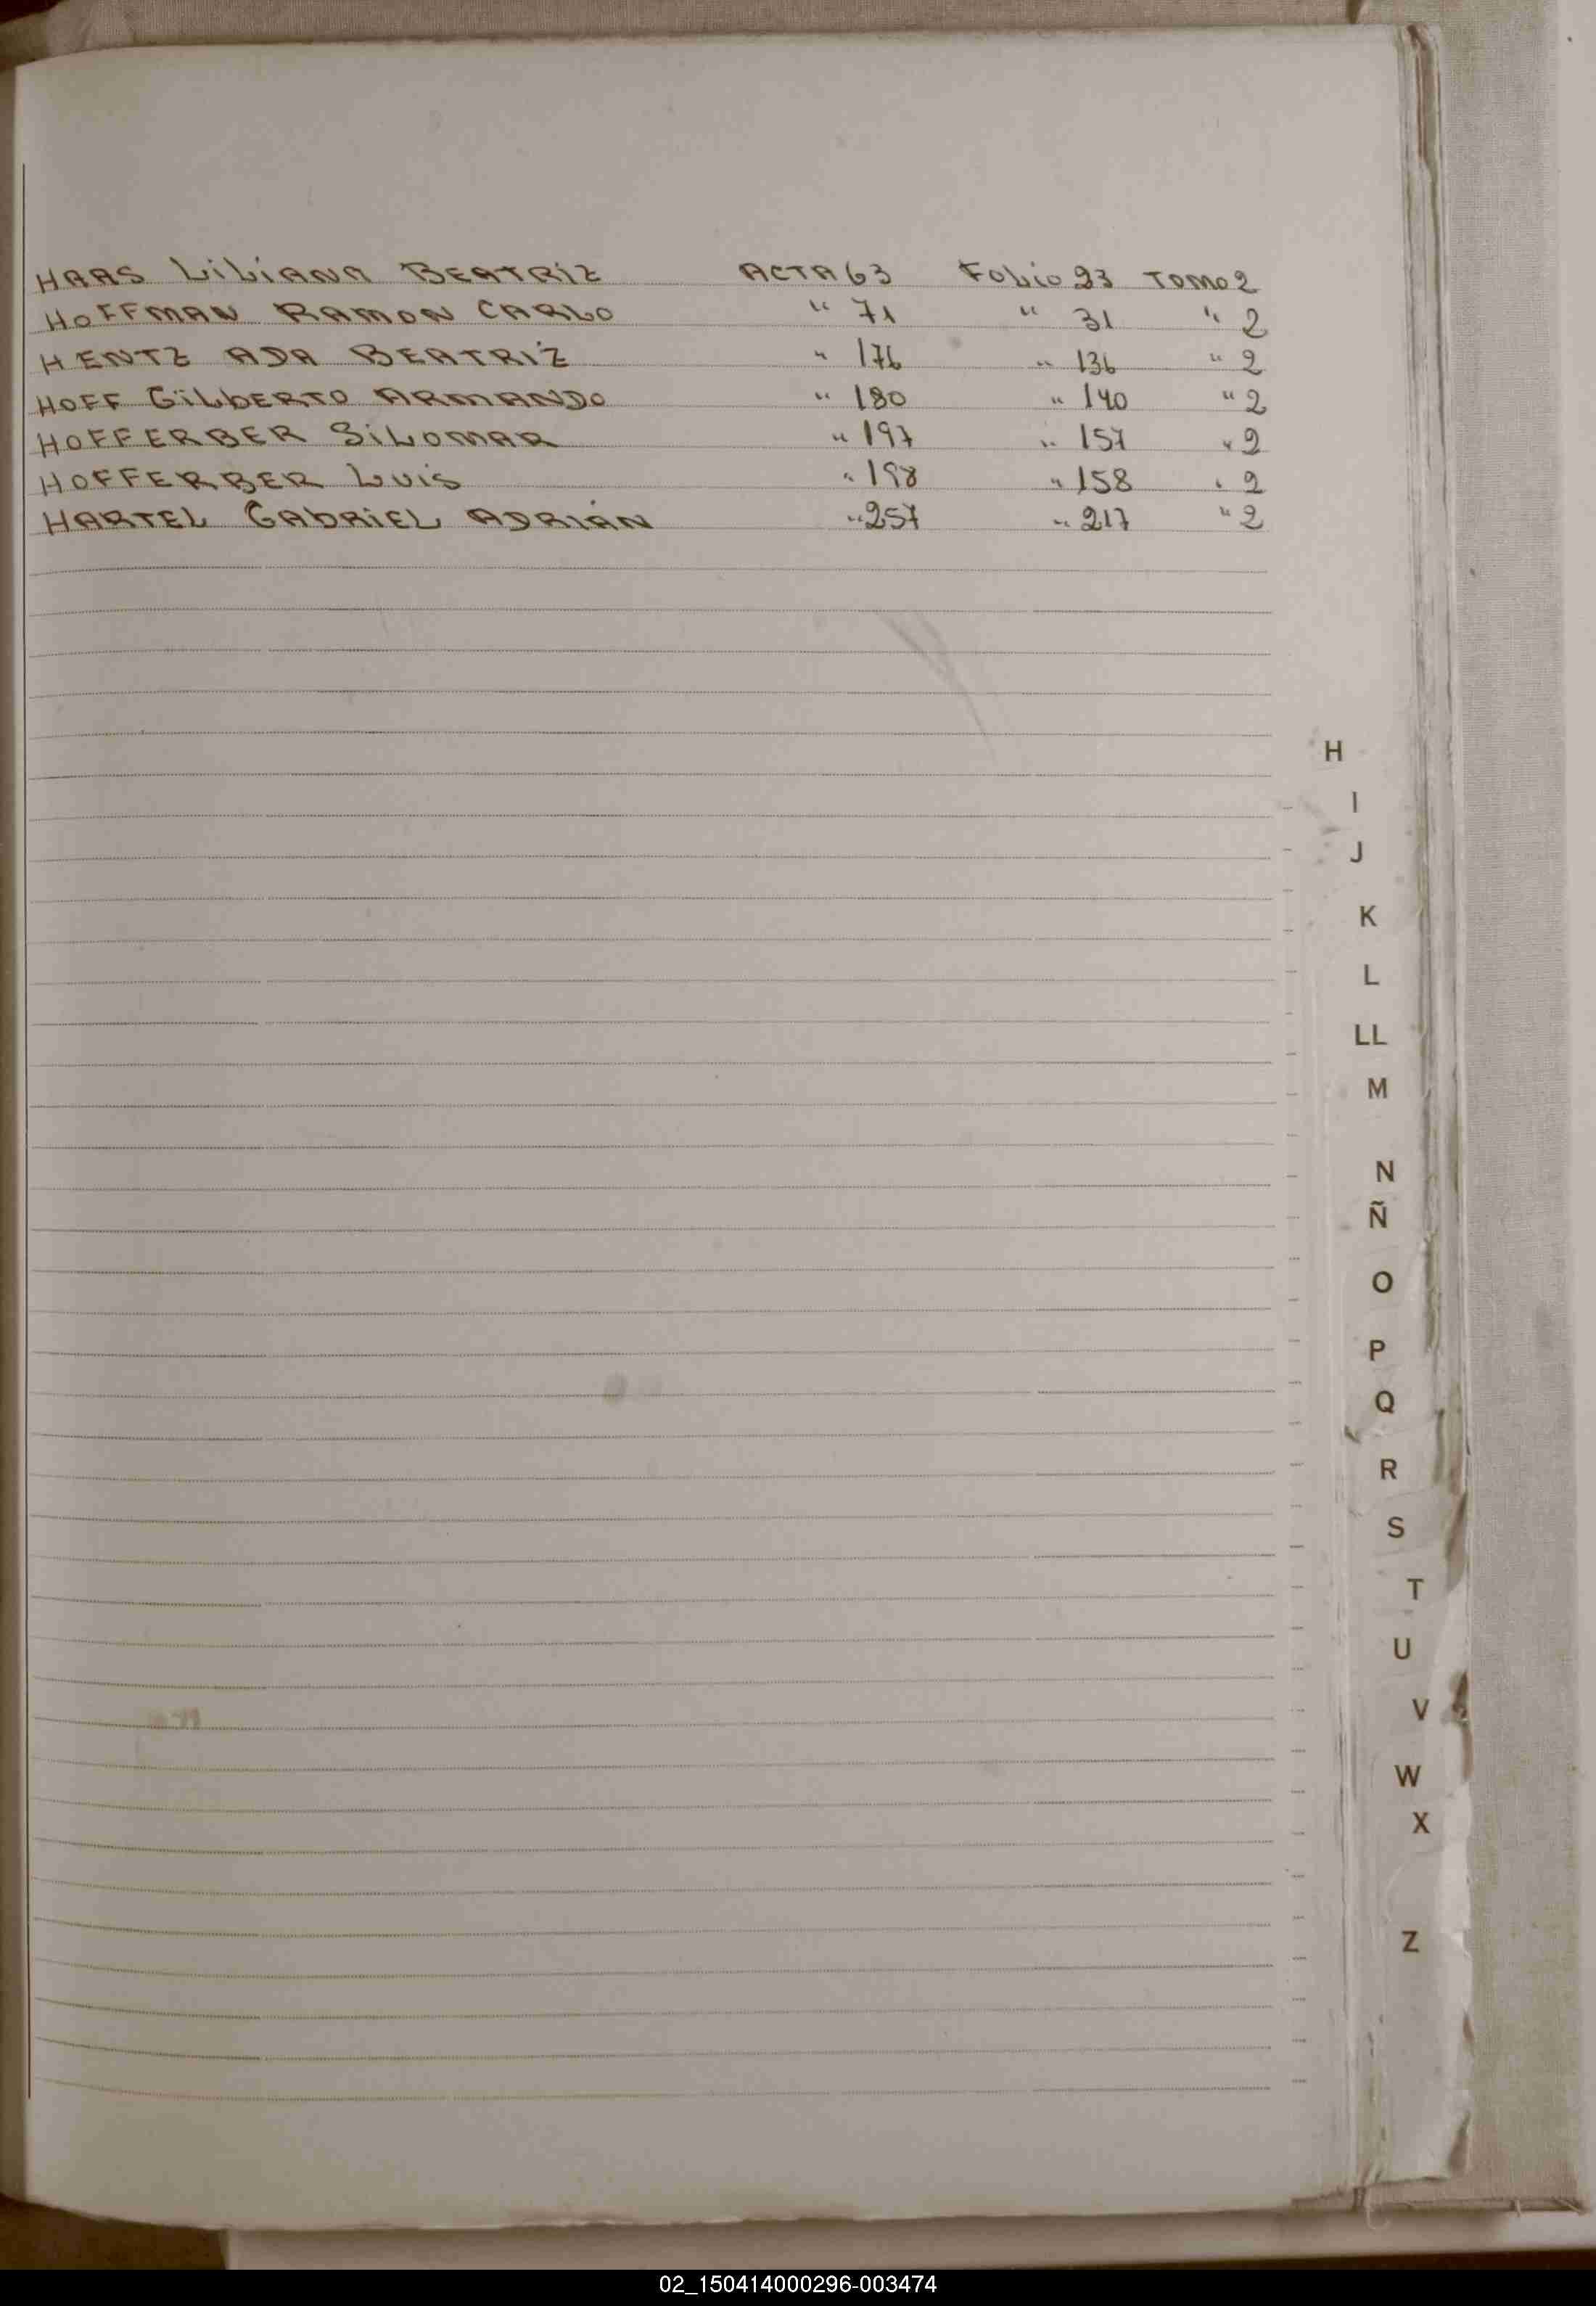 HAAS LiLiANA BEATRiZ ACTA 63 FoLio 23 TOMO 2
HOFFMAN RAMON CARLO " 71 " 31 " 2
HENTZ ADA BEATRiZ " 176 " 136 " 2
HOFF GiLbERTO ARMANDO " 180 " 140 " 2
HOFFERBER SiLOMAR " 197 " 157 " 2
HOFFERBER LUiS " 198 " 158 " 2
HARTEL GAbRiEL ADRIÁN " 257 " 217 " 2
H
I
J
K
L
LL
M
N
Ñ
O
P
Q
R
S
T
U
V
W
X
Z
02_150414000296-003474